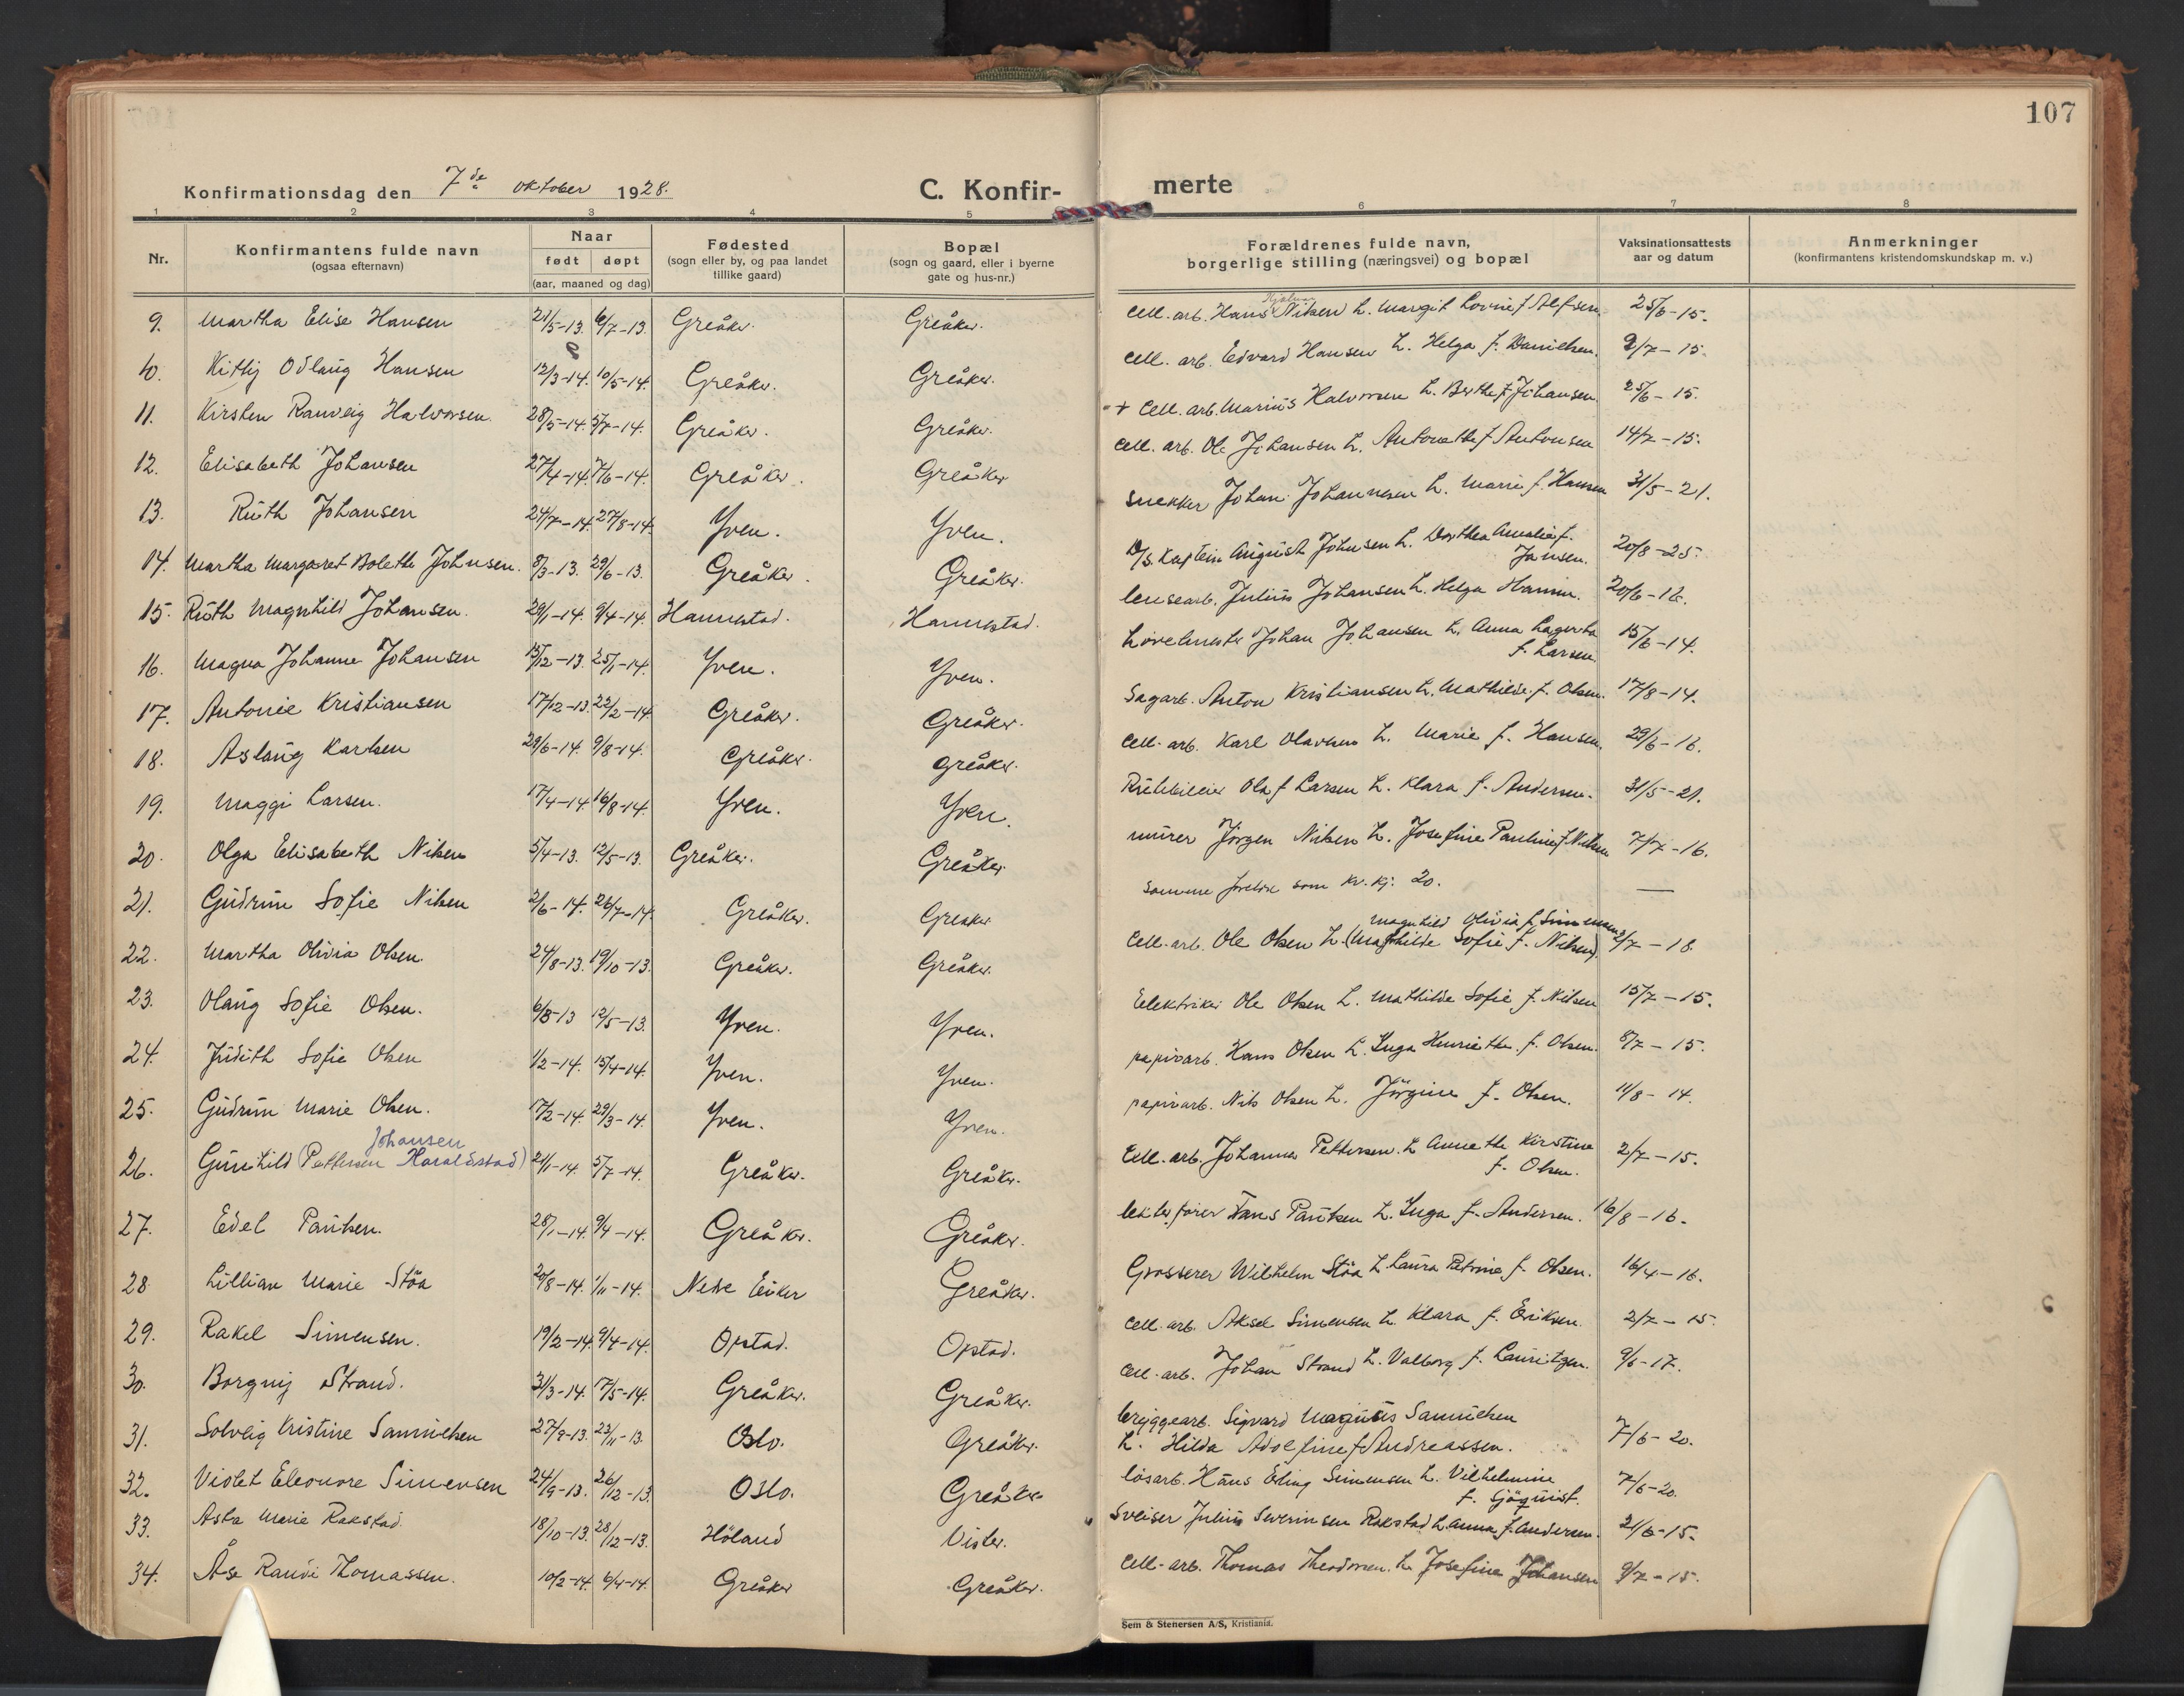 107
Konfirmationsdag den 7de oktober 1928.
C. Konfir- merte
1 2 3 4 5 6 7 8
Nr.
Konfirmantens fulde navn
(ogsaa efternavn)
Naar
født døpt
(aar, maaned og dag)
Fødested
(sogn eller by, og paa landet
tillike gaard)
Bopæl
(sogn og gaard, eller i byerne
gate og hus-nr.)
Forældrenes fulde navn,
borgerlige stilling (næringsvei) og bopæl
Vaksinationsattests
aar og datum
Anmerkninger
(konfirmantens kristendomskundskap m. v.)
9. Martha Elise Hansen 21/5-13. 6/7-13. Greåker. Greåker. Cell. arb. Hans Hjalmar Nilsen h. Margit Lovise f. Alfsen. 25/6-15.
10. Kitty Odlaug Hansen 12/3-14. 10/5-14. Greåker. Greåker. Cell. arb. Edvard Hansen h. Helga f. Danielsen. 2/7-15.
11. Kirsten Ranveig Halvorsen. 28/5-14. 5/7-14. Greåker. Greåker. + Cell. arb. Marius Halvorsen h. Berthe f. Johansen. 25/6-15.
12. Elisabeth Johansen 27/4-14. 7/6-14. Greåker. Greåker Cell. arb. Ole Johansen h. Antonette f. Antonsen 14/7-15.
13. Ruth Johansen 24/7-14. 27/8-14. Yven. Yven. Snekker Johan Johannesen h. Marie f. Hansen 31/5-21.
14. Martha Margaret Bolethe Johnsen. 8/3-13. 29/6-13. Greåker. Greåker. D/S. Kaptein August Johnsen h. Dorthea Amalie f.
Jansen. 20/8-25.
15. Ruth Magnhild Johansen. 29/1-14. 9/4-14. Hannestad. Hannestad. lensearb. Julius Johansen h. Helga 20/6-16.
16. Magna Johanne Johansen 15/12-13. 25/1-14. Yven. Yven. Johan Johansen h. Anna Lagertha
f. Larsen. 15/6-14.
17. Antonie Kristiansen 17/12-13. 22/2-14. Greåker. Greåker. Sagarb. Anton Kristiansen h. Mathilde f. Olsen. 17/8-14.
18. Aslaug Karlsen 29/6-14. 9/8-14. Greåker. Greåker. Cell. arb. Karl Olavsen h. Marie f. Hansen. 29/6-16.
19. Maggi Larsen. 17/4-14. 16/8-14. Yven. Yven. Olaf Larsen h. Klara f. Andersen. 31/5-21.
20. Olga Elisabeth Nilsen 5/4-13. 12/5-13. Greåker. Greåker. murer Jörgen Nilsen h. Josefine Pauline f. Nilsen 7/7-16.
21. Gudrun Sofie Nilsen 2/6-14. 26/7-14. Greåker. Greåker samme foreldre som kv. kj. 20. —
22. Martha Olivia Olsen. 24/8-13. 19/10-13. Greåker. Greåker. Cell. arb. Ole Olsen h. Magnhild Olivia f. Simensen
(Mathilde Sofie f. Nilsen). 2/7-18.
23. Olaug Sofie Olsen. 6/3-13 12/5-13. Yven. Yven. Eelektriker Ole Olsen h. Mathilde Sofie f. Nilsen 15/7-15.
24. Judith Sofie Olsen 1/2-14. 13/4-14. Yven. Yven. papirarb. Hans Olsen h. Inga Henriette f. Olsen. 8/7-15.
25. Gudrun Marie Olsen. 17/2-14. 29/3-14. Yven. Yven. papirarb. Nils Olsen h. Jörgine f. Olsen. 11/8-14.
26. Gunhild (Pettersen Johansen Haraldstad) 21/1-14. 5/7-14. Greåker. Greåker. Cell. arb. Johannes Pettersen. h Annethe Kirstine
f. Olsen. 2/7-15.
27. Edel Paulsen. 28/1-14. 9/4-14. Greåker. Greåker. lekterfører Hans Paulsen h. Inga f. Andersen. 16/8-16.
28 Lillian Marie Stöa 20/8-14. 1/11-14. Nedre Eiker Greåker. Grosserer Wilhelm Stöa h Laura Petrine f. Olsen. 16/4-16.
29. Rakel Simensen. 19/2-14. 9/4-14. Opstad. Opstad. Cell. arb. Aksel Simensen h. Klara f. Eriksen. 2/7-15.
30. Borgny Strand. 31/3-14. 17/5-14. Greåker. Greåker. Cell. arb. Johan Strand h. Valborg f. Lauritzen. 9/6-17.
31. Solveig Kristine Samuelsen 27/9-13. 23/11-13. Oslo. Greåker. bryggearb. Sigvard Magnus Samuelsen
h. Hilda Adolfine f. Andreassen. 7/6-20.
32. Violet Eleonore Simensen 24/9-13. 26/12-13. Oslo. Greåker. lösarb. Hans Erling Simensen h. Vilhelmine
f. Sjöquist. 7/6-20.
33. Asta Marie Rakstad. 18/10-13. 28/12-13. Höland Vister. Sveiser Julius Severinsen Rakstad h. Anna f. Andersen. 21/6-15.
34. Åse Randi Thomassen. 10/2-14. 6/4-14. Greåker Greåker. Cell. arb. Thomas Theodorsen. h. Josefine Johansen 9/7-15.
Sem & Stenersen A/S, Kristiania.